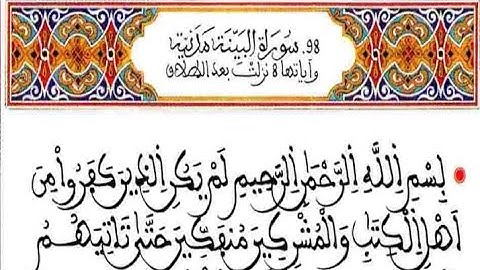 98. سورة البينة مدنية
وآياتها 8 نزلت بعد الطلاق
بِسْمِ اِللَّهِ اِلرَّحْمَٰنِ اِلرَّحِيمِ لَمْ يَكُنِ اِلذِينَ كَفَرُواْ مِنَ
اَهْلِ اِلْكِتَٰبِ وَالْمُشْرِكِينَ مُنفَكِّينَ حَتَّىٰ تَاتِيَهُمُ